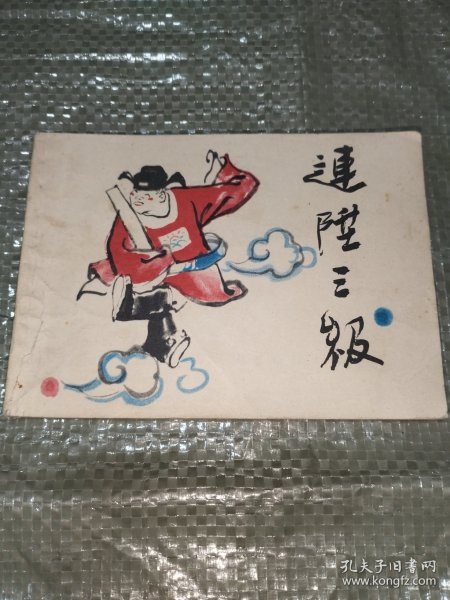 連陞三級
孔夫子旧书网
www.kongfz.com